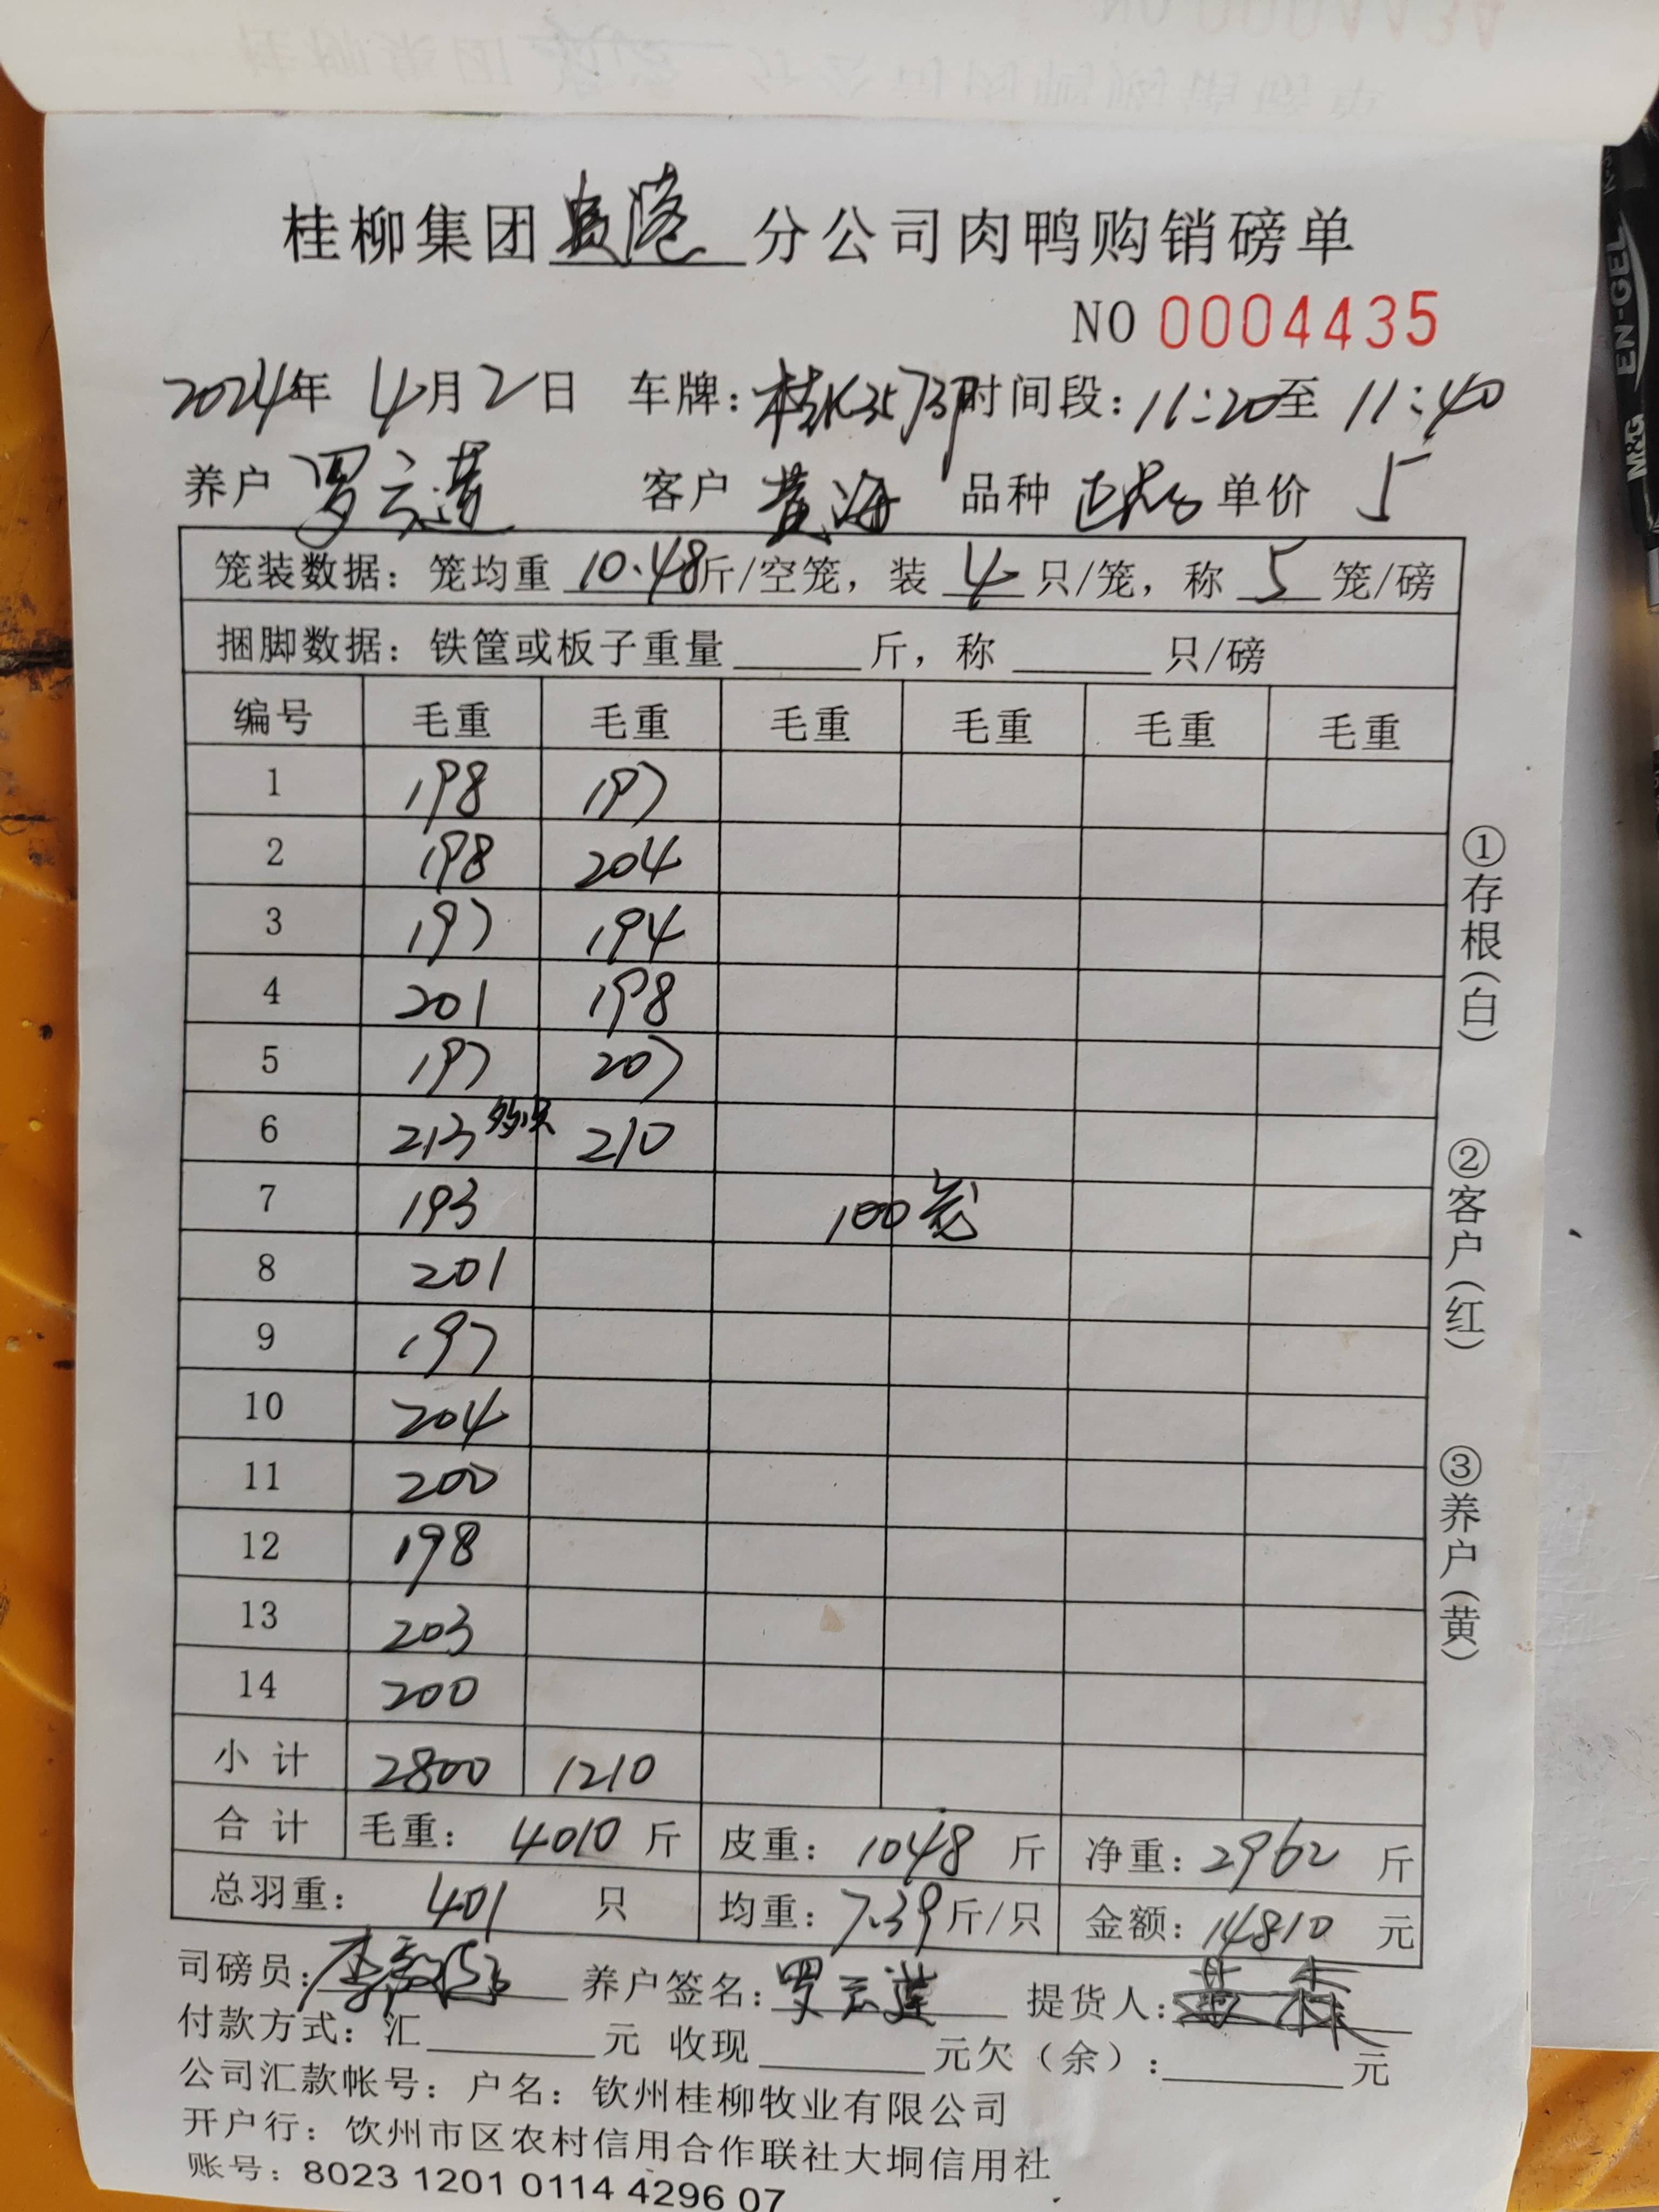 桂柳集团贵港分公司肉鸭购销磅单
NO 0004435
2024年 4月2日 车牌:桂K3573P 时间段:11:20至 11:40
养户 罗云莲 客户 黄海 品种 单价 5
笼装数据：笼均重 10.48斤/空笼，装 4 只/笼，称 5 笼/磅
捆脚数据：铁筐或板子重量 斤，称 只/磅
编号 毛重 毛重 毛重 毛重 毛重 毛重
1 198 197
2 198 204
3 197 194
4 201 198
5 197 207
6 213 多1只 210
7 193 100笼
8 201
9 197
10 204
11 200
12 198
13 203
14 200
小计 2800 1210
合计 毛重： 4010 斤 皮重： 1048 斤 净重：2962 斤
总羽重： 401 只 均重：7.39斤/只 金额：14810 元
司磅员: 养户签名:罗云莲 提货人:
付款方式：汇 元 收现 元欠（余）: 元
公司汇款帐号：户名：钦州桂柳牧业有限公司
开户行：钦州市区农村信用合作联社大垌信用社
账号：8023 1201 0114 4296 07
①存根（白）
②客户（红）
③养户（黄）
M&G EN-GEL